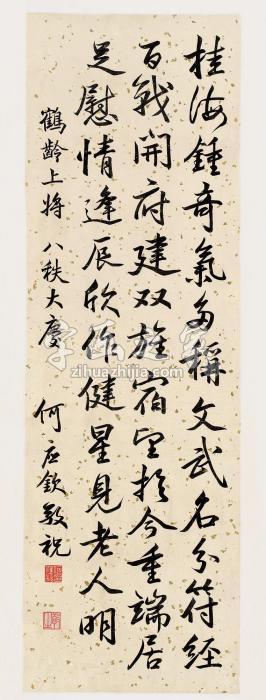 桂海鍾奇氣多稱文武名分符經
百戰開府建双旌宿望於今重端居
足慰情逢辰欣作健星見老人明
鶴齡上将 八秩大慶
何应欽敬祝
zihuazhijia.com